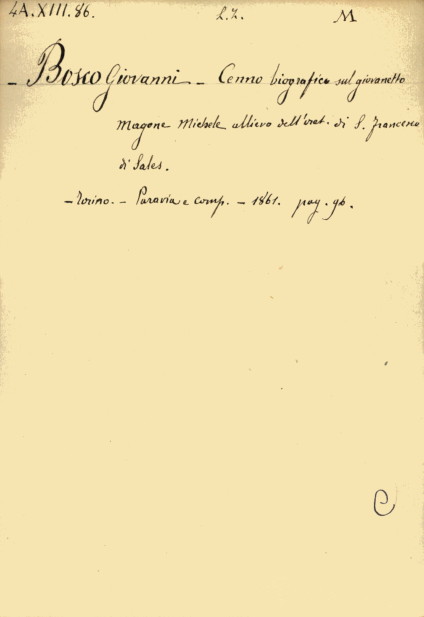 4A.XIII.86. L.Z. M
- Bosco Giovanni - Cenno biografico sul giovanetto
Magone Michele allievo dell'orat. di S. Francesco
di Sales.
- Torino. - Paravia e comp. - 1861. pag. 96.
C